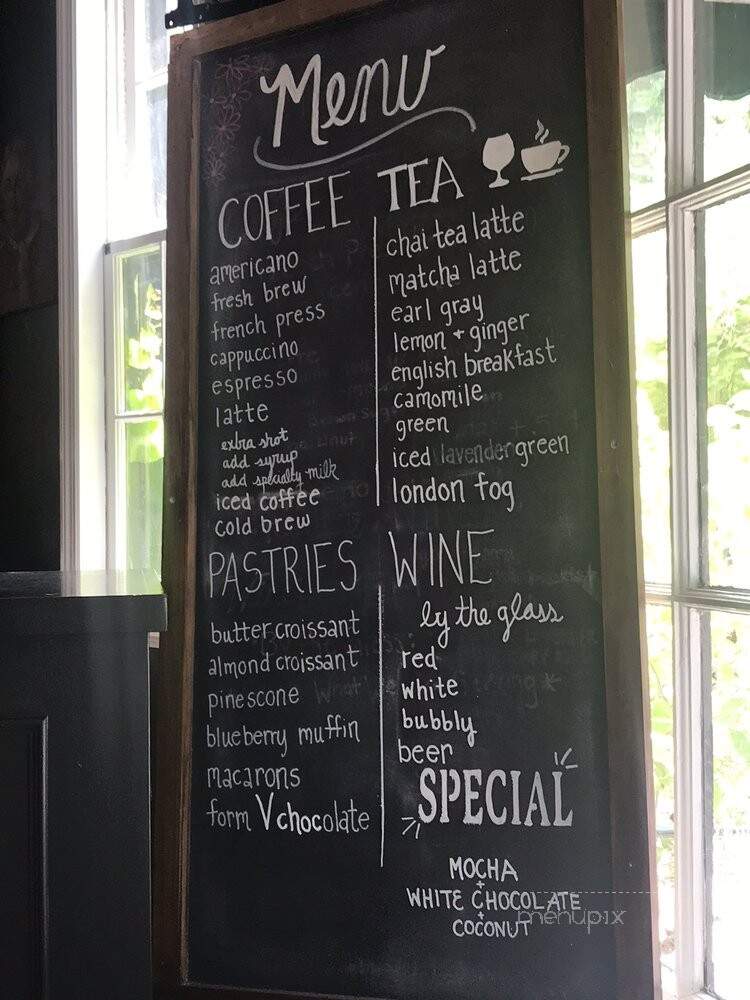 Menu
COFFEE
americano
fresh brew
french press
cappuccino
espresso
latte
extra shot
add syrup
add specialty milk
iced coffee
cold brew
TEA
chai tea latte
matcha latte
earl gray
lemon + ginger
english breakfast
camomile
green
iced lavender green
london fog
PASTRIES
butter croissant
almond croissant
pinescone
blueberry muffin
macarons
form V chocolate
WINE
by the glass
red
white
bubbly
beer
SPECIAL
MOCHA
+
WHITE CHOCOLATE
+
COCONUT
menupix